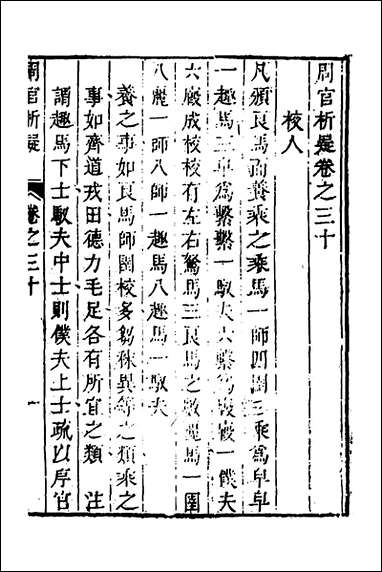 周官析疑卷之三十
校人
凡頒良馬而養乘之乘馬一師四圉三乘為皁皁
一趣馬三皁為繫繫一馭夫六繫為廄廄一僕夫
六廄成校校有左右駑馬三良馬之數麗馬一圉
八麗一師八師一趣馬八趣馬一馭夫
養之事如良馬師圉校多芻秣異等之類乘之
事如齊道戎田德力毛足各有所宜之類　注
謂趣馬下士馭夫中士則僕夫上士疏以序官
周官析疑
卷之三十
一